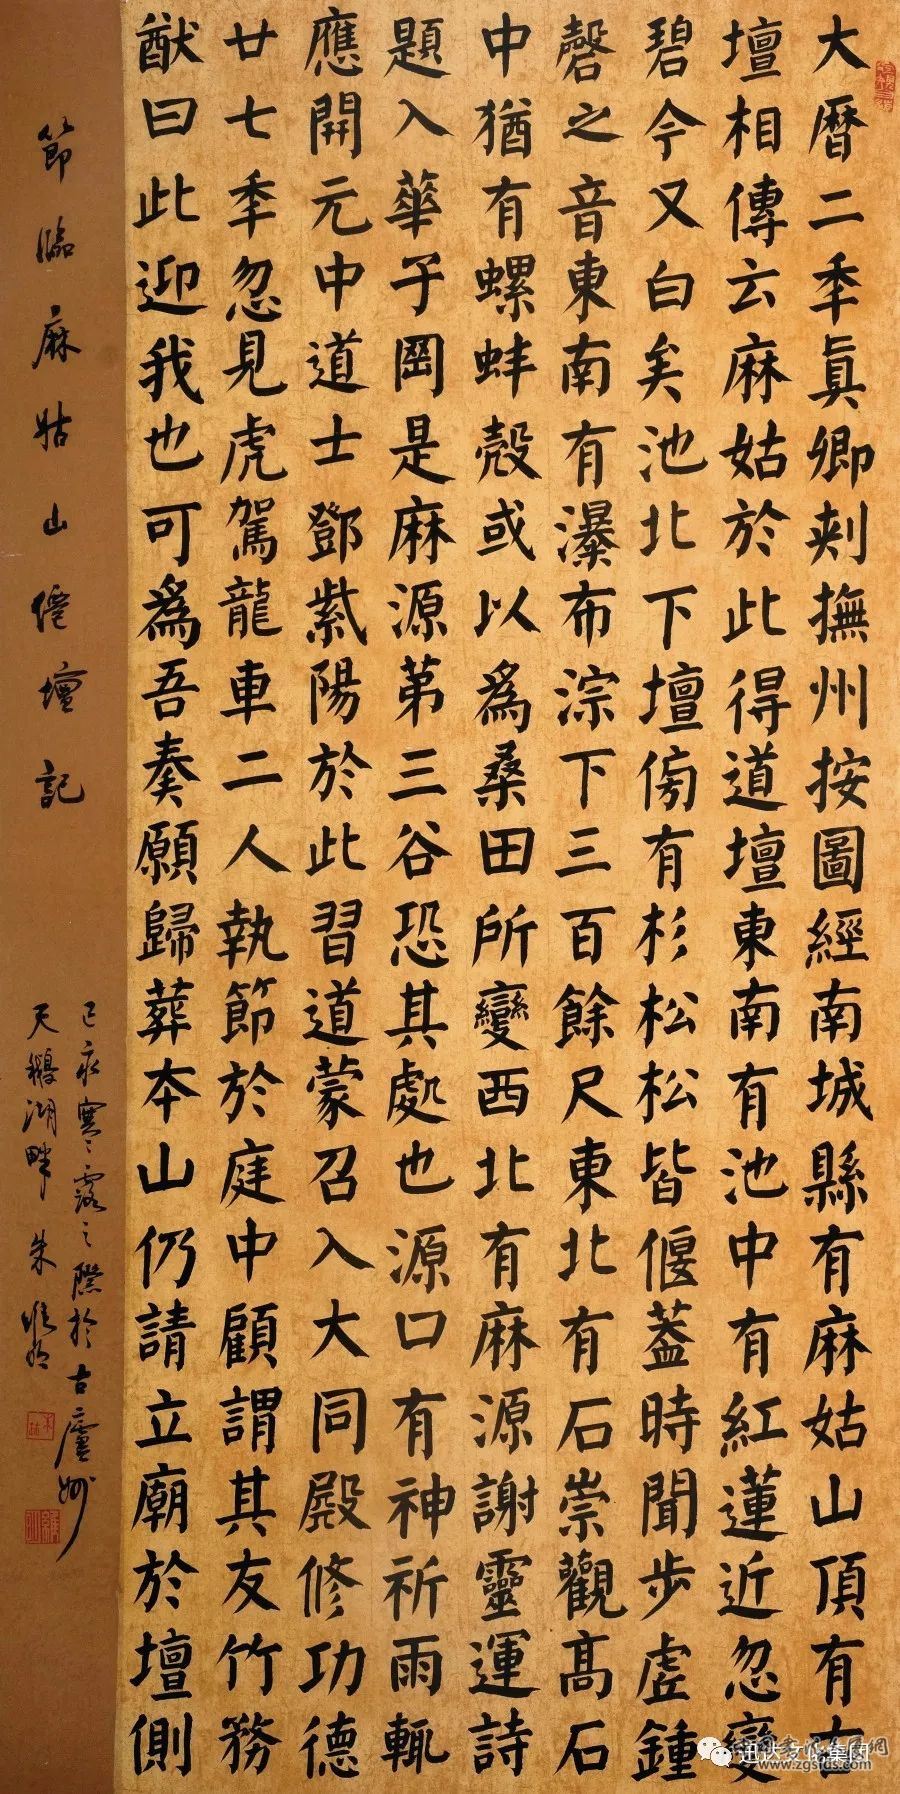 大曆二秊眞卿刾撫州按圖經南城縣有麻姑山頂有古
壇相傳云麻姑於此得道壇東南有池中有紅蓮近忽變
碧今又白矣池北下壇傍有杉松松皆偃蓋時聞步虛鍾
磬之音東南有瀑布淙下三百餘尺東北有石崇觀高石
中猶有螺蚌殼或以爲桑田所變西北有麻源謝靈運詩
題入華子岡是麻源第三谷恐其處也源口有神祈雨輒
應開元中道士鄧紫陽於此習道蒙召入大同殿修功德
廿七秊忽見虎駕龍車二人執節於庭中顧謂其友竹務
猷曰此迎我也可爲吾奏願歸葬本山仍請立廟於壇側
節臨麻姑山僊壇記
己亥寒露之際於古廬州
天鵝湖畔 朱
迅达文化集团
www.zgsfds.com